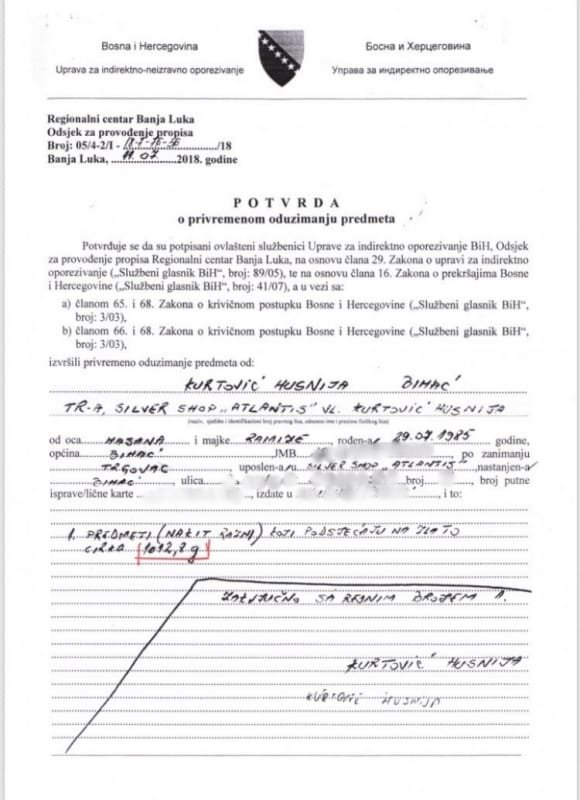 Bosna i Hercegovina
Uprava za indirektno-neizravno oporezivanje
Босна и Херцеговина
Управа за индиректно опорезивање
Regionalni centar Banja Luka
Odsjek za provođenje propisa
Broj: 05/4-2/I - /18
Banja Luka, 11.07 2018. godine
P O T V R D A
o privremenom oduzimanju predmeta
Potvrđuje se da su potpisani ovlašteni službenici Uprave za indirektno oporezivanje BiH, Odsjek
za provođenje propisa Regionalni centar Banja Luka, na osnovu člana 29. Zakona o upravi za indirektno
oporezivanje („Službeni glasnik BiH“, broj: 89/05), te na osnovu člana 16. Zakona o prekršajima Bosne
i Hercegovine („Službeni glasnik BiH“, broj: 41/07), a u vezi sa:
a) članom 65. i 68. Zakona o krivičnom postupku Bosne i Hercegovine („Službeni glasnik BiH“,
broj: 3/03),
b) članom 66. i 68. Zakona o krivičnom postupku Bosne i Hercegovine („Službeni glasnik BiH“,
broj: 3/03),
izvršili privremeno oduzimanje predmeta od:
KURTOVIĆ HUSNIJA BIHAĆ
TR-A, SILVER SHOP „ATLANTIS“ VL. KURTOVIĆ HUSNIJA
od oca HASANA i majke RAMIZE, rođen-a 29.07.1985 godine,
općina BIHAĆ JMB , po zanimanju
TRGOVAC uposlen-a u SILVER SHOP „ATLANTIS“, nastanjen-a
BIHAĆ, ulica broj , broj putne
isprave/lične karte , izdate u , i to:
1. PREDMETI (NAKIT RAZNI) KOJI PODSJEĆAJU NA ZLATO
CIRKA 1012,7 g
ZAKLJUČNO SA REDNIM BROJEM 1.
KURTOVIĆ HUSNIJA
KURTOVIĆ HUSNIJA